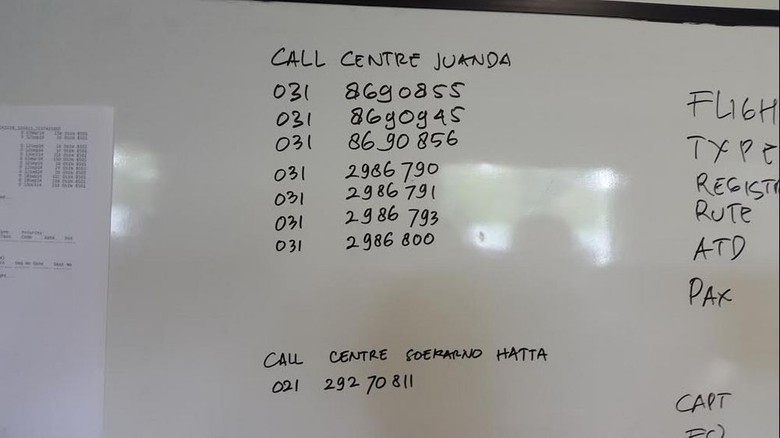 CALL CENTRE JUANDA
031 8690855
031 8690945
031 8690856
031 2986790
031 2986791
031 2986793
031 2986800
CALL CENTRE SOEKARNO HATTA
021 29270811
FLIGH
TYPE
REGISTR
RUTE
ATD
PAX
CAPT
FO